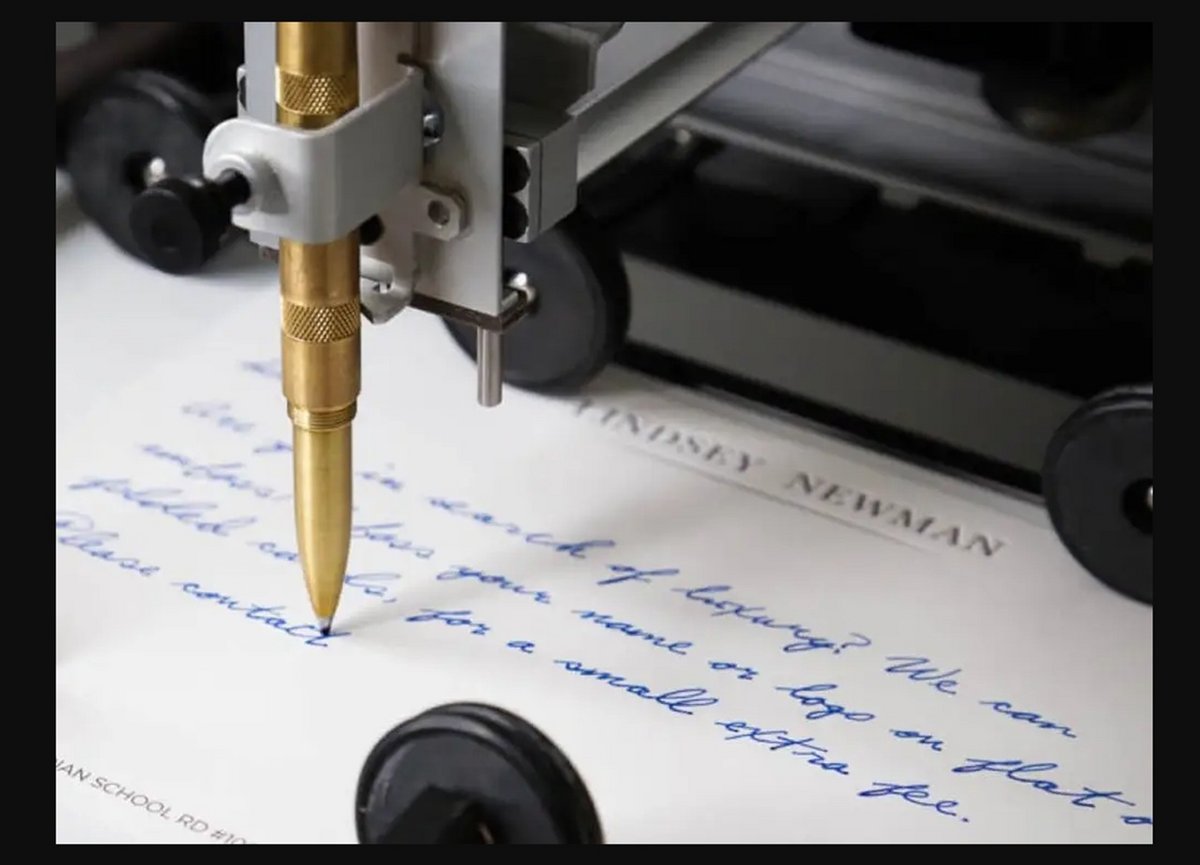 LINDSEY NEWMAN
Are in search of luxury? We can
your name or logo on flat
folded for a small extra fee.
Please contact
IAN SCHOOL RD #10